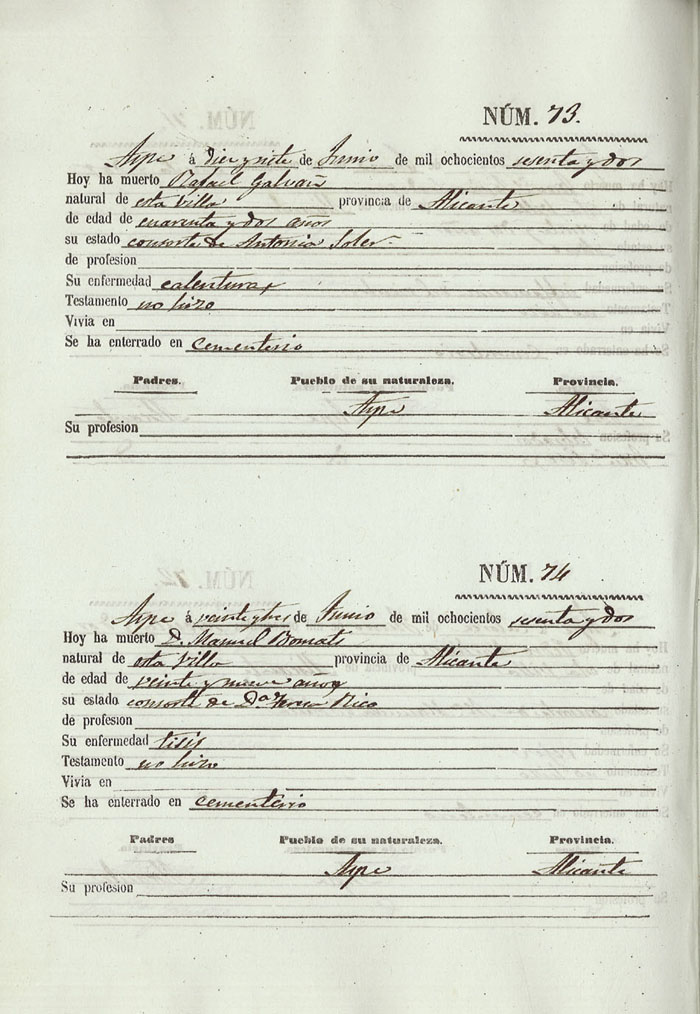 NÚM. 73.
Aspe á diez y siete de Junio de mil ochocientos sesenta y dos
Hoy ha muerto Rafael Galvañ
natural de esta Villa provincia de Alicante
de edad de cuarenta y dos años
su estado consorte de Antonia Soler
de profesion
Su enfermedad calentura
Testamento no hizo
Vivia en
Se ha enterrado en cementerio
Padres. Pueblo de su naturaleza. Provincia.
Aspe Alicante
Su profesion
NÚM. 74
Aspe á veinte y tres de Junio de mil ochocientos sesenta y dos
Hoy ha muerto D. Manuel
natural de esta Villa provincia de Alicante
de edad de veinte y nueve años
su estado consorte de Dª Rico
de profesion
Su enfermedad tisis
Testamento no hizo
Vivia en
Se ha enterrado en cementerio
Padres Pueblo de su naturaleza. Provincia.
Aspe Alicante
Su profesion